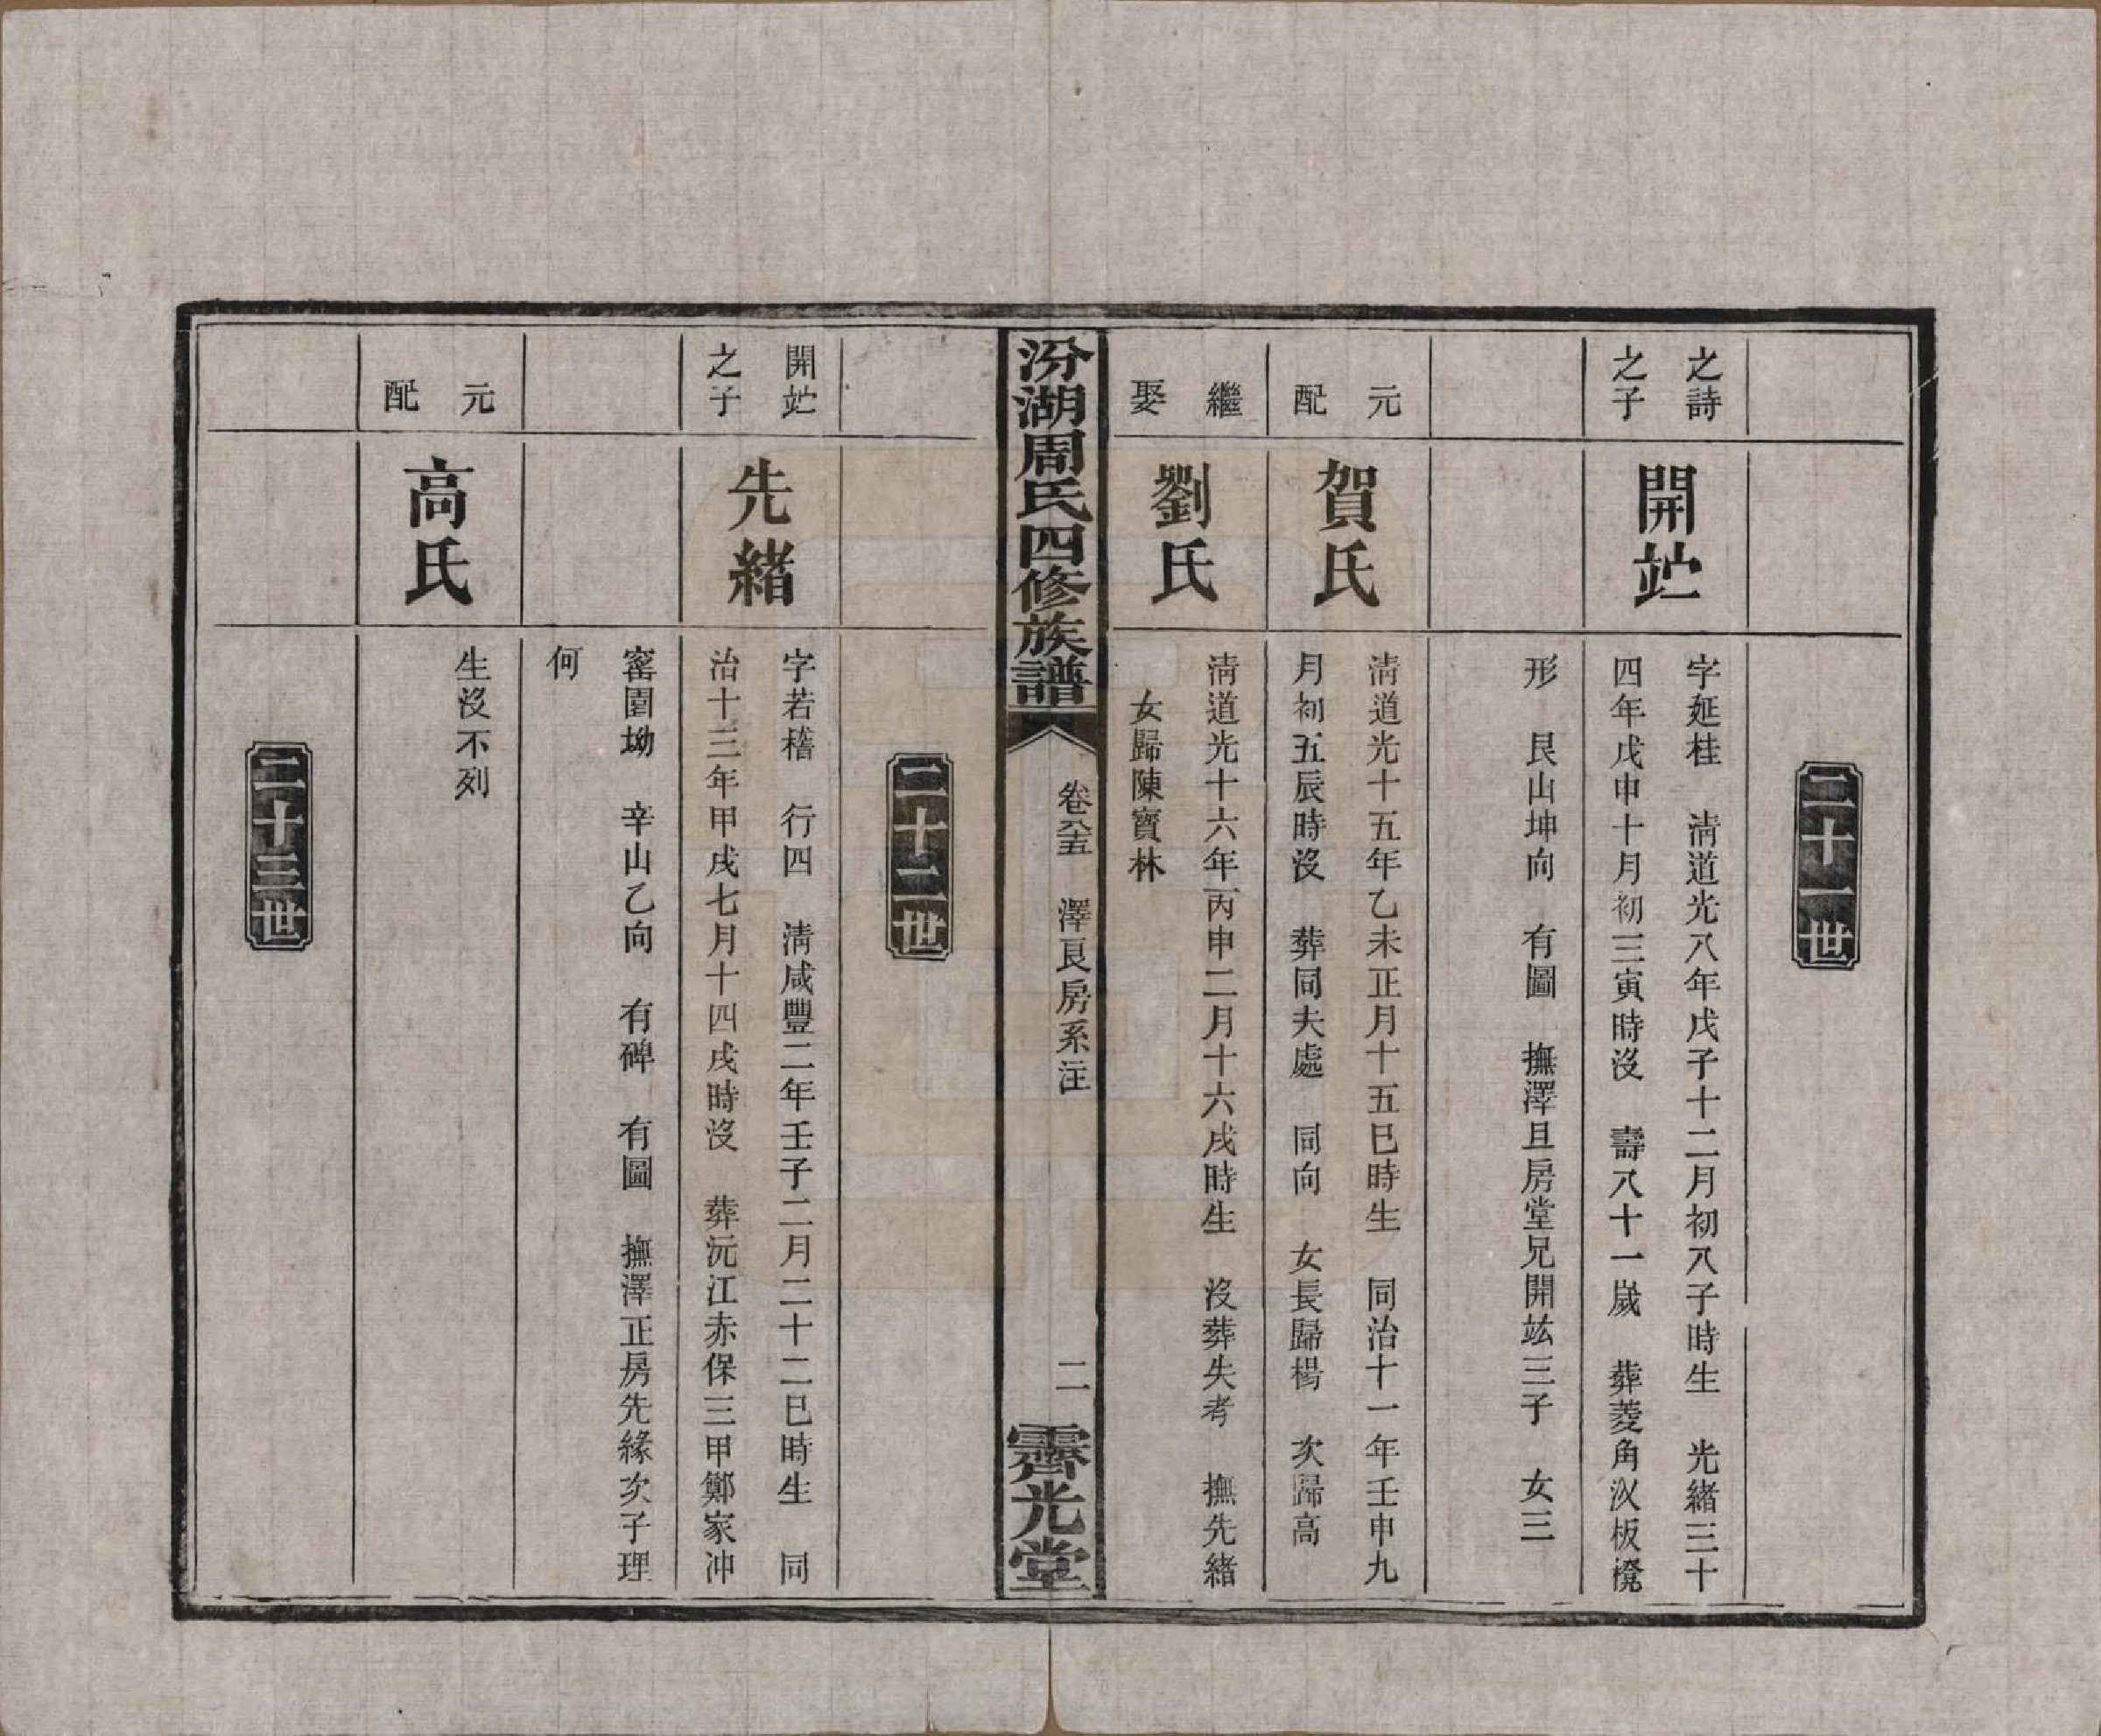 二十一世
之詩
之子
開𡵆
字延桂 淸道光八年戊子十二月初八子時生 光緒三十
四年戊申十月初三寅時沒 壽八十一嵗 葬菱角汊板櫈
形 艮山坤向 有圖 撫澤且房堂兄開竑三子 女三
元
配
賀氏
淸道光十五年乙未正月十五巳時生 同治十一年壬申九
月初五辰時沒 葬同夫處 同向 女長歸楊 次歸高
繼
娶
劉氏
淸道光十六年丙申二月十六戌時生 沒葬失考 撫先緒
女歸陳寶林
汾湖周氏四修族譜
卷六十五 澤良房系注
二
霽光堂
二十二世
開
之子
先緒
字若稽 行四 淸咸豐二年壬子二月二十二巳時生 同
治十三年甲戌七月十四戌時沒 葬沅江赤保三甲鄭家冲
窰圍坳 辛山乙向 有碑 有圖 撫澤正房先緣次子理
何
元
配
高氏
生沒不列
二十三世